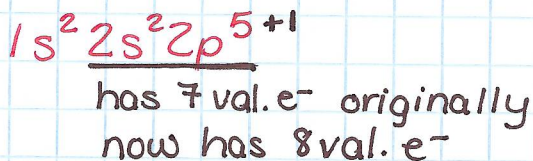 1s² 2s² 2p⁵ ⁺¹
has 7 val. e⁻ originally
now has 8 val. e⁻